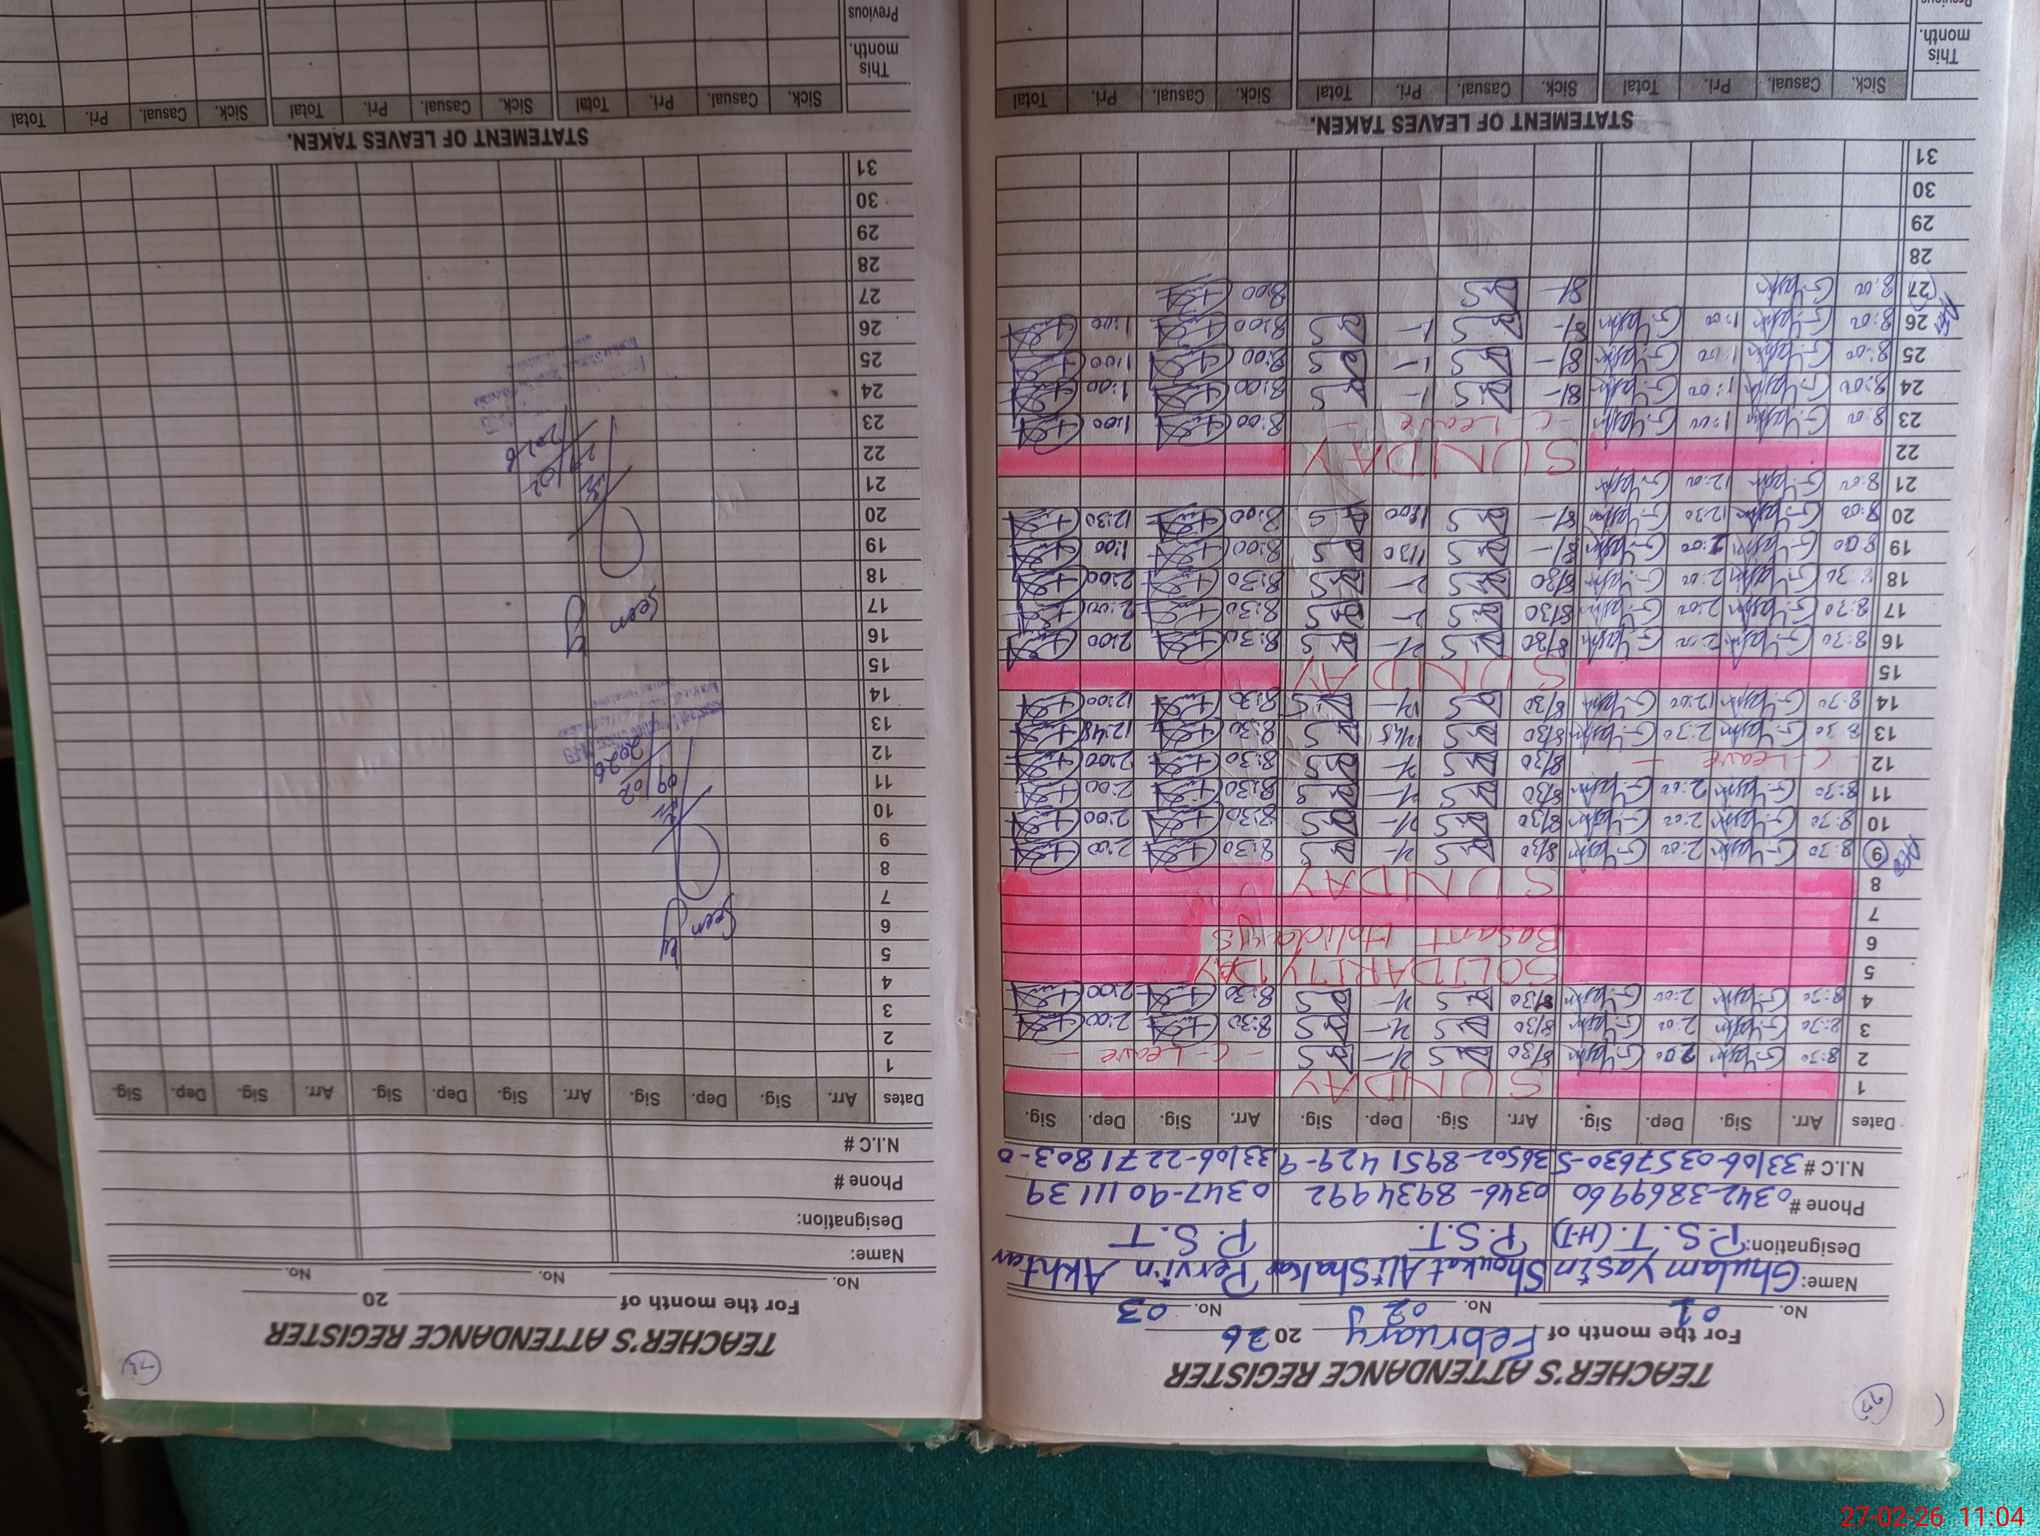 TEACHER'S ATTENDANCE REGISTER
For the month of February 2026
No. 01 No. 02 No. 03
Name: Ghulam Yasin Shoukat Ali Shakar Pervin Akhtar
Designation: P.S.T. (H-T) P.S.T. P.S.T
Phone # 0342-3869960 0346-8934992 0347-9011139
N.I.C # 33106-0357630-5 36502-8951429-9 33106-2271803-0
Dates Arr. Sig. Dep. Sig. Arr. Sig. Dep. Sig. Arr. Sig. Dep. Sig.
1 SUNDAY
2 8:30 G-Yasin 2:00 G-Yasin 8/30 2/- - C-Leave -
3 8:30 G-Yasin 2:00 G-Yasin 8/30 2/- 8:30 2:00
4 8:30 G-Yasin 2:00 G-Yasin 8/30 2/- 8:30 2:00
5 SOLIDARITY DAY
6 Basant Holidays
7
8 SUNDAY
9 8:30 G-Yasin 2:00 G-Yasin 8/30 2/- 8:30 2:00
10 8:30 G-Yasin 2:00 G-Yasin 8/30 2/- 8:30 2:00
11 8:30 G-Yasin 2:00 G-Yasin 8/30 2/- 8:30 2:00
12 - C-Leave - 8/30 2/- 8:30 2:00
13 8:30 G-Yasin 2:30 G-Yasin 8/30 12/45 8:30 12:45
14 8:30 G-Yasin 12:00 G-Yasin 8/30 8:30 12:00
15 SUNDAY
16 8:30 G-Yasin 2:00 G-Yasin 8/30 2/- 8:30 2:00
17 8:30 G-Yasin 2:00 G-Yasin 8/30 2- 8:30 2:00
18 8:30 G-Yasin 2:00 G-Yasin 8/30 2- 8:30 2:00
19 8:00 G-Yasin 2:00 G-Yasin 8/- 8:00 1:00
20 8:00 G-Yasin 12:30 G-Yasin 8/- 8:00 12:30
21 8:00 G-Yasin 12:00 G-Yasin
22 SUNDAY
23 8:00 G-Yasin 1:00 G-Yasin - C-Leave - 8:00 1:00
24 8:00 G-Yasin 1:00 G-Yasin 8/- 1- 8:00 1:00
25 8:00 G-Yasin 1:00 G-Yasin 8/- 1- 8:00 1:00
26 8:00 G-Yasin 1:00 G-Yasin 8/- 1- 8:00 1:00
27 8:00 G-Yasin 8/- 8:00
28
29
30
31
STATEMENT OF LEAVES TAKEN.
Sick. Casual. Pri. Total Sick. Casual. Pri. Total Sick. Casual. Pri. Total
This month.
Previous
TEACHER'S ATTENDANCE REGISTER
For the month of 20
No. No. No.
Name:
Designation:
Phone #
N.I.C #
Dates Arr. Sig. Dep. Sig. Arr. Sig. Dep. Sig. Arr. Sig. Dep. Sig.
1
2
3
4
5
6
7 Seen
8
9
10
11 09/02
12 2026
13
14
15
16
17 Seen
18
19
20
21
22
23 2026
24
25
26
27
28
29
30
31
STATEMENT OF LEAVES TAKEN.
Sick. Casual. Pri. Total Sick. Casual. Pri. Total Sick. Casual. Pri. Total
This month.
Previous
27-02-26 11:04